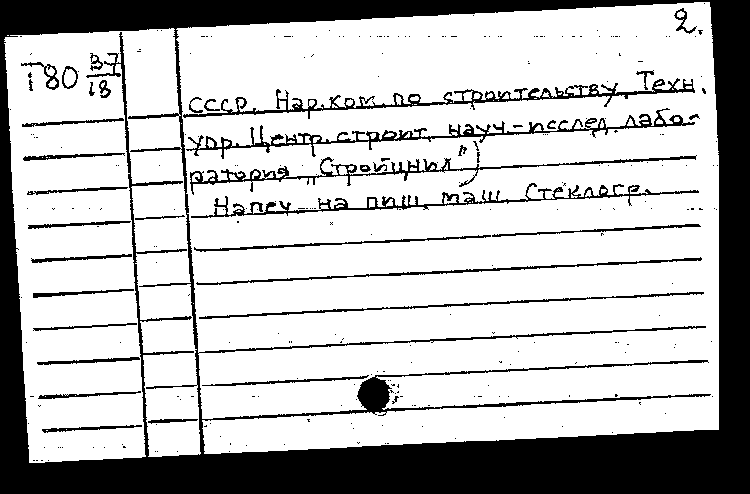 2.
Т80 37/18
СССР. Нар.ком. по строительству. Техн.
упр. Центр. строит. науч.-исслед. лабо-
ратория „Стройцнил")
Напеч. на пиш. маш. Стеклогр.